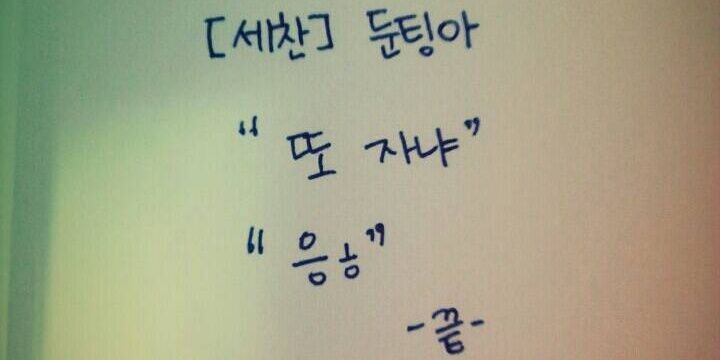 [세찬] 둔팅아
"또 자냐"
"응ㅎ"
-끝-